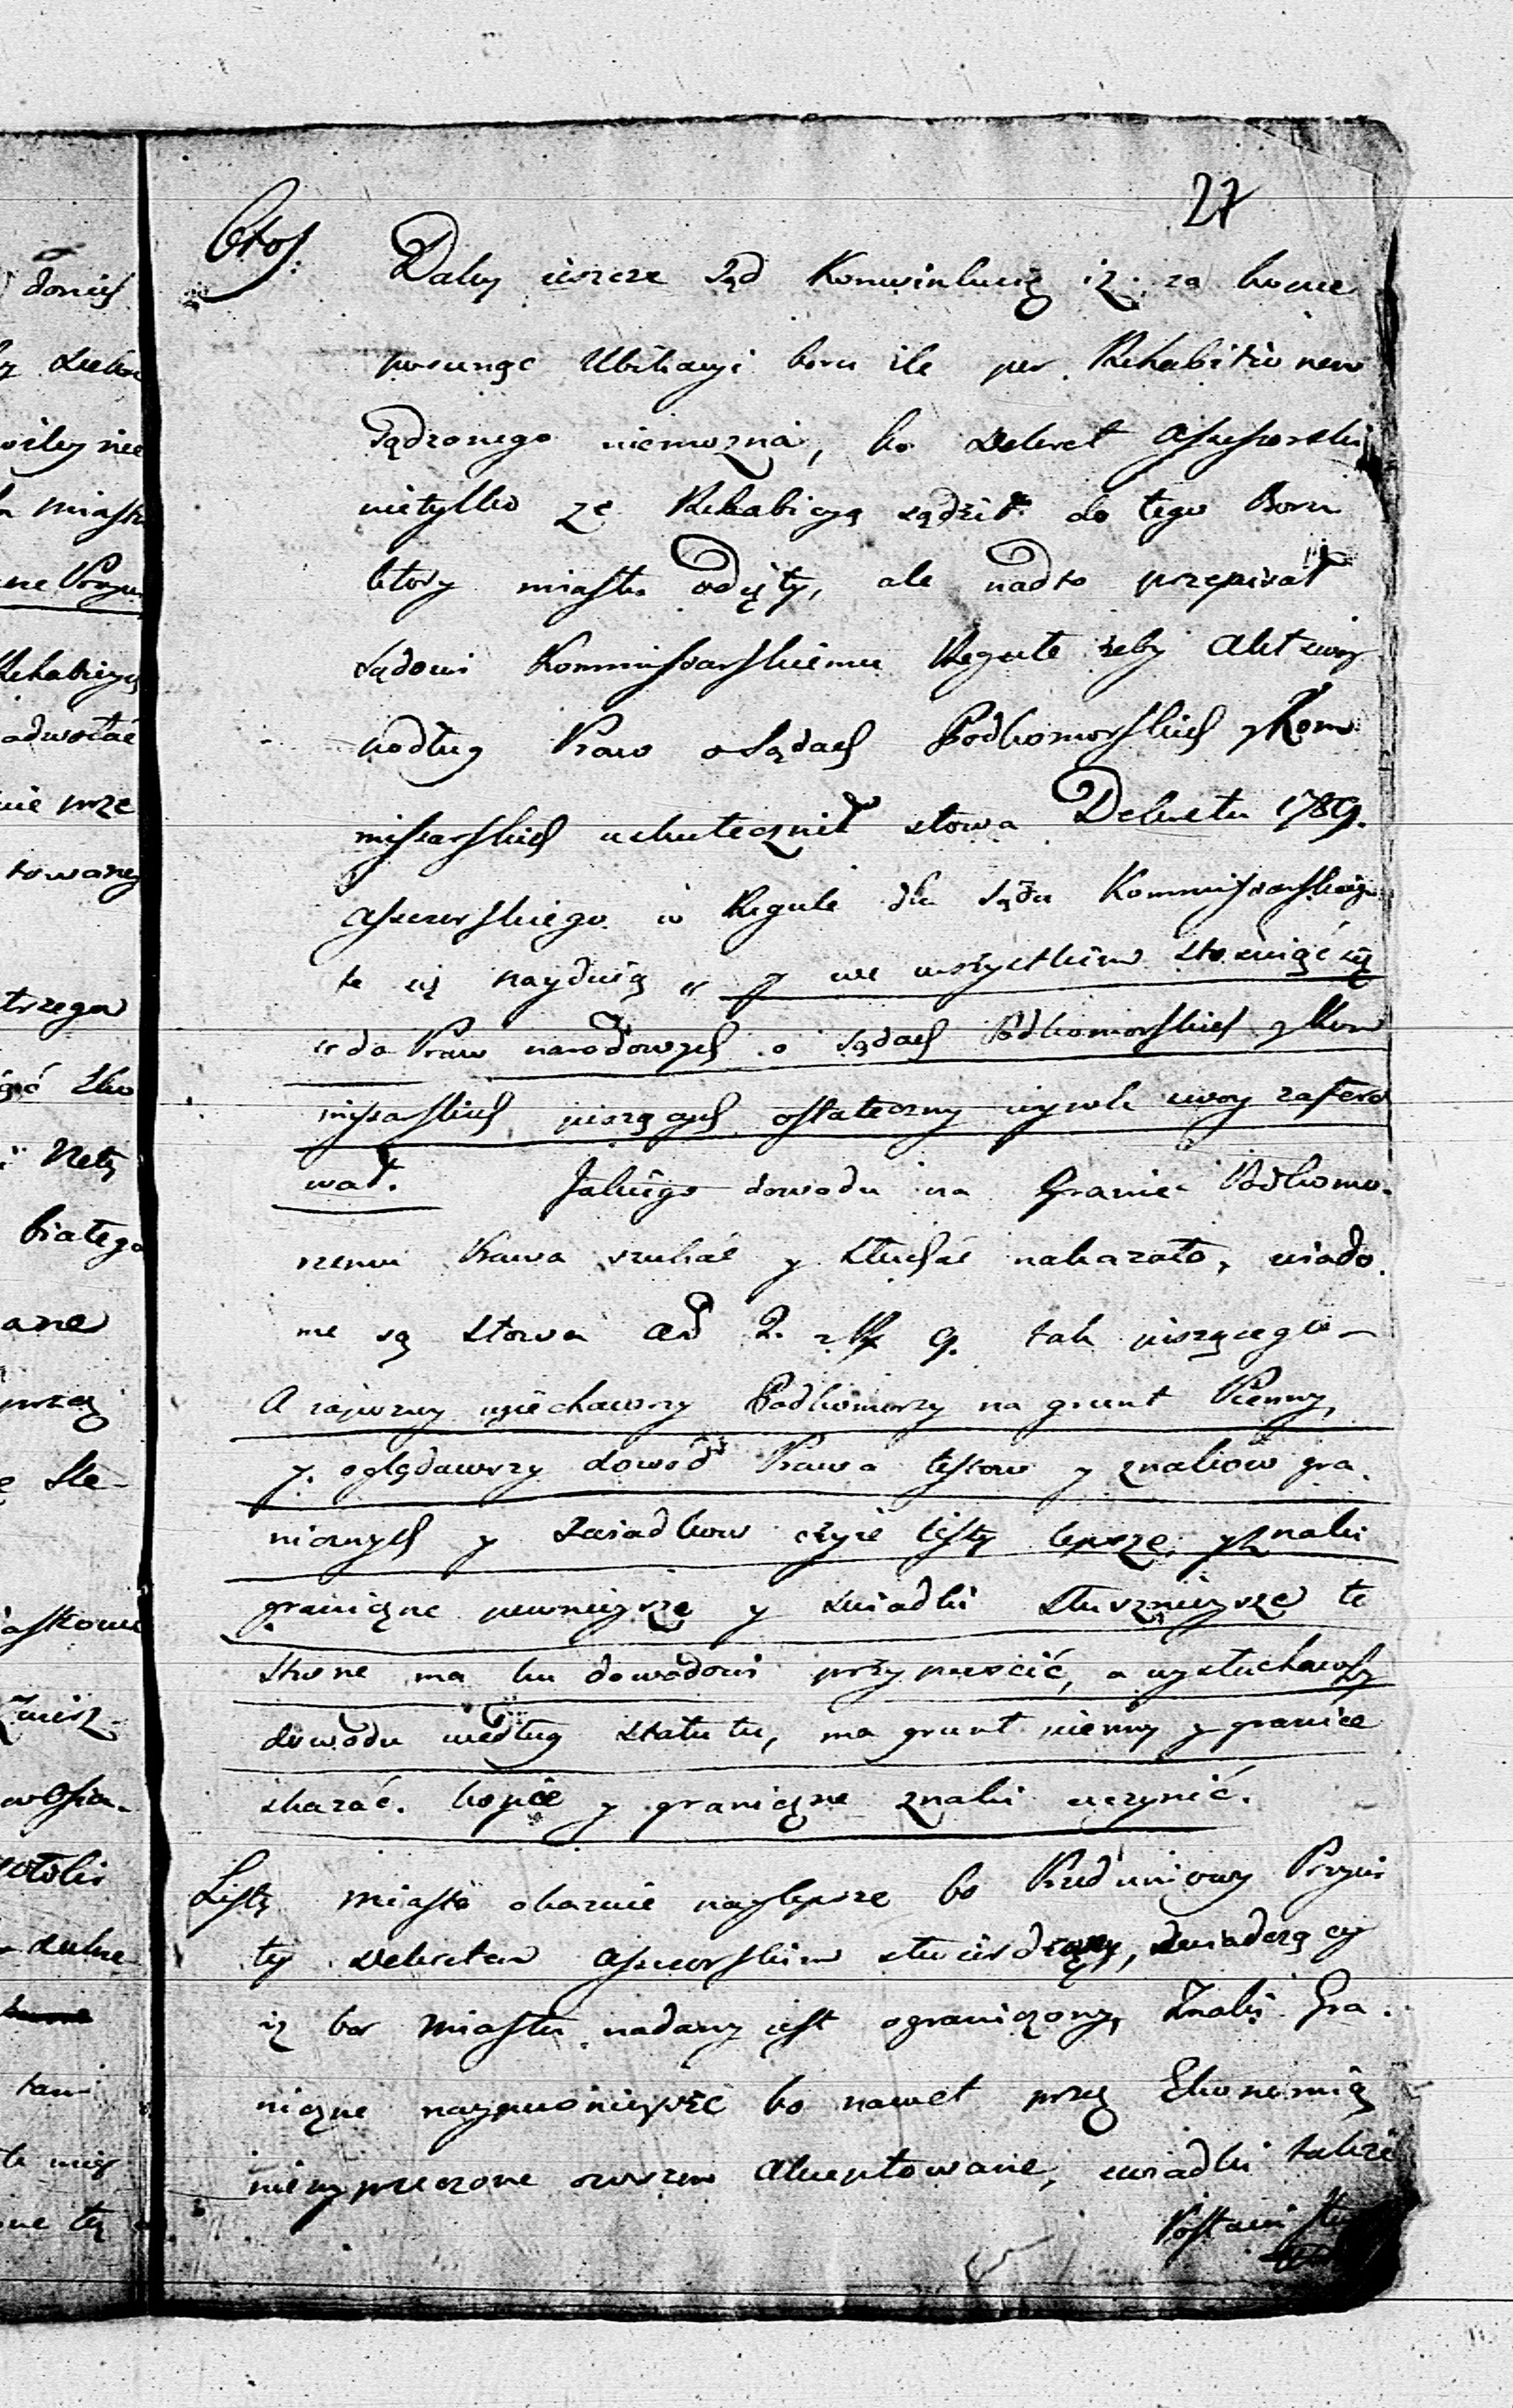 27
6toſ:
Daley ieszcze Sąd Konwinkuię iż za kopce
posunąc Ubikacyi boru ile per Rehabitionem
sądzonego niemożna, bo Dekret Assessorski
nietylko że Rehabicyą sądził do tego Boru
ktory miastu odięty, ale nadto przepisał
Sądowi Kommissarskiemu Regułę żeby Akt swoy
podług Praw o Sądach Podkomorskich y Kom
missarskich uskutecznił słowa Dekretu 1789.
Assessorskiego w Regule dla Sądu Kommissarskiego
te się nayduią „ y we wszystkim stosuiąc się
„ do Praw narodowych o Sądach Podkomorskich y Kom
missarskich piszących ostateczny wywle swoy zafero
wał. Jakiego dowodu na Granice Podkomo.
rzemu Prawa szukać y Słuchać nakazało, wiado.
me są słowa Art 2. z R 9. tak piszącego —
A napierwy wyiechawszy Podkomorzy na grunt Pienny,
y oglądawszy dowod Prawa listow y znakow gra
nicznych y Swiadkow czyie listy lepsze, y znaki
graniczne pewnieysze y swiadki słusznieysze te
strone ma ku dowodowi przypuscić, a wysłuchawszy
dowodu według Statutu, ma grunt pienny y granice
skazać. kopce y graniczne znaki uczynić.
Listy miasto okazuie naylepsze bo Preduniowy Przywi
ley Dekretem Assessorskim stwierdzony, swiadczący
iż bor Miastu nadany iest ograniczony, Znaki Gra.
niczne naypewnieysze bo nawet przez Ekonomią
niezaprzeczone owszem akceptowane, swiadki także
Postawi
donich
miastu
Rehabicyą
odwołać
nie prze
towaney
trzega
białego
ane
przez
ę Ste-
tam